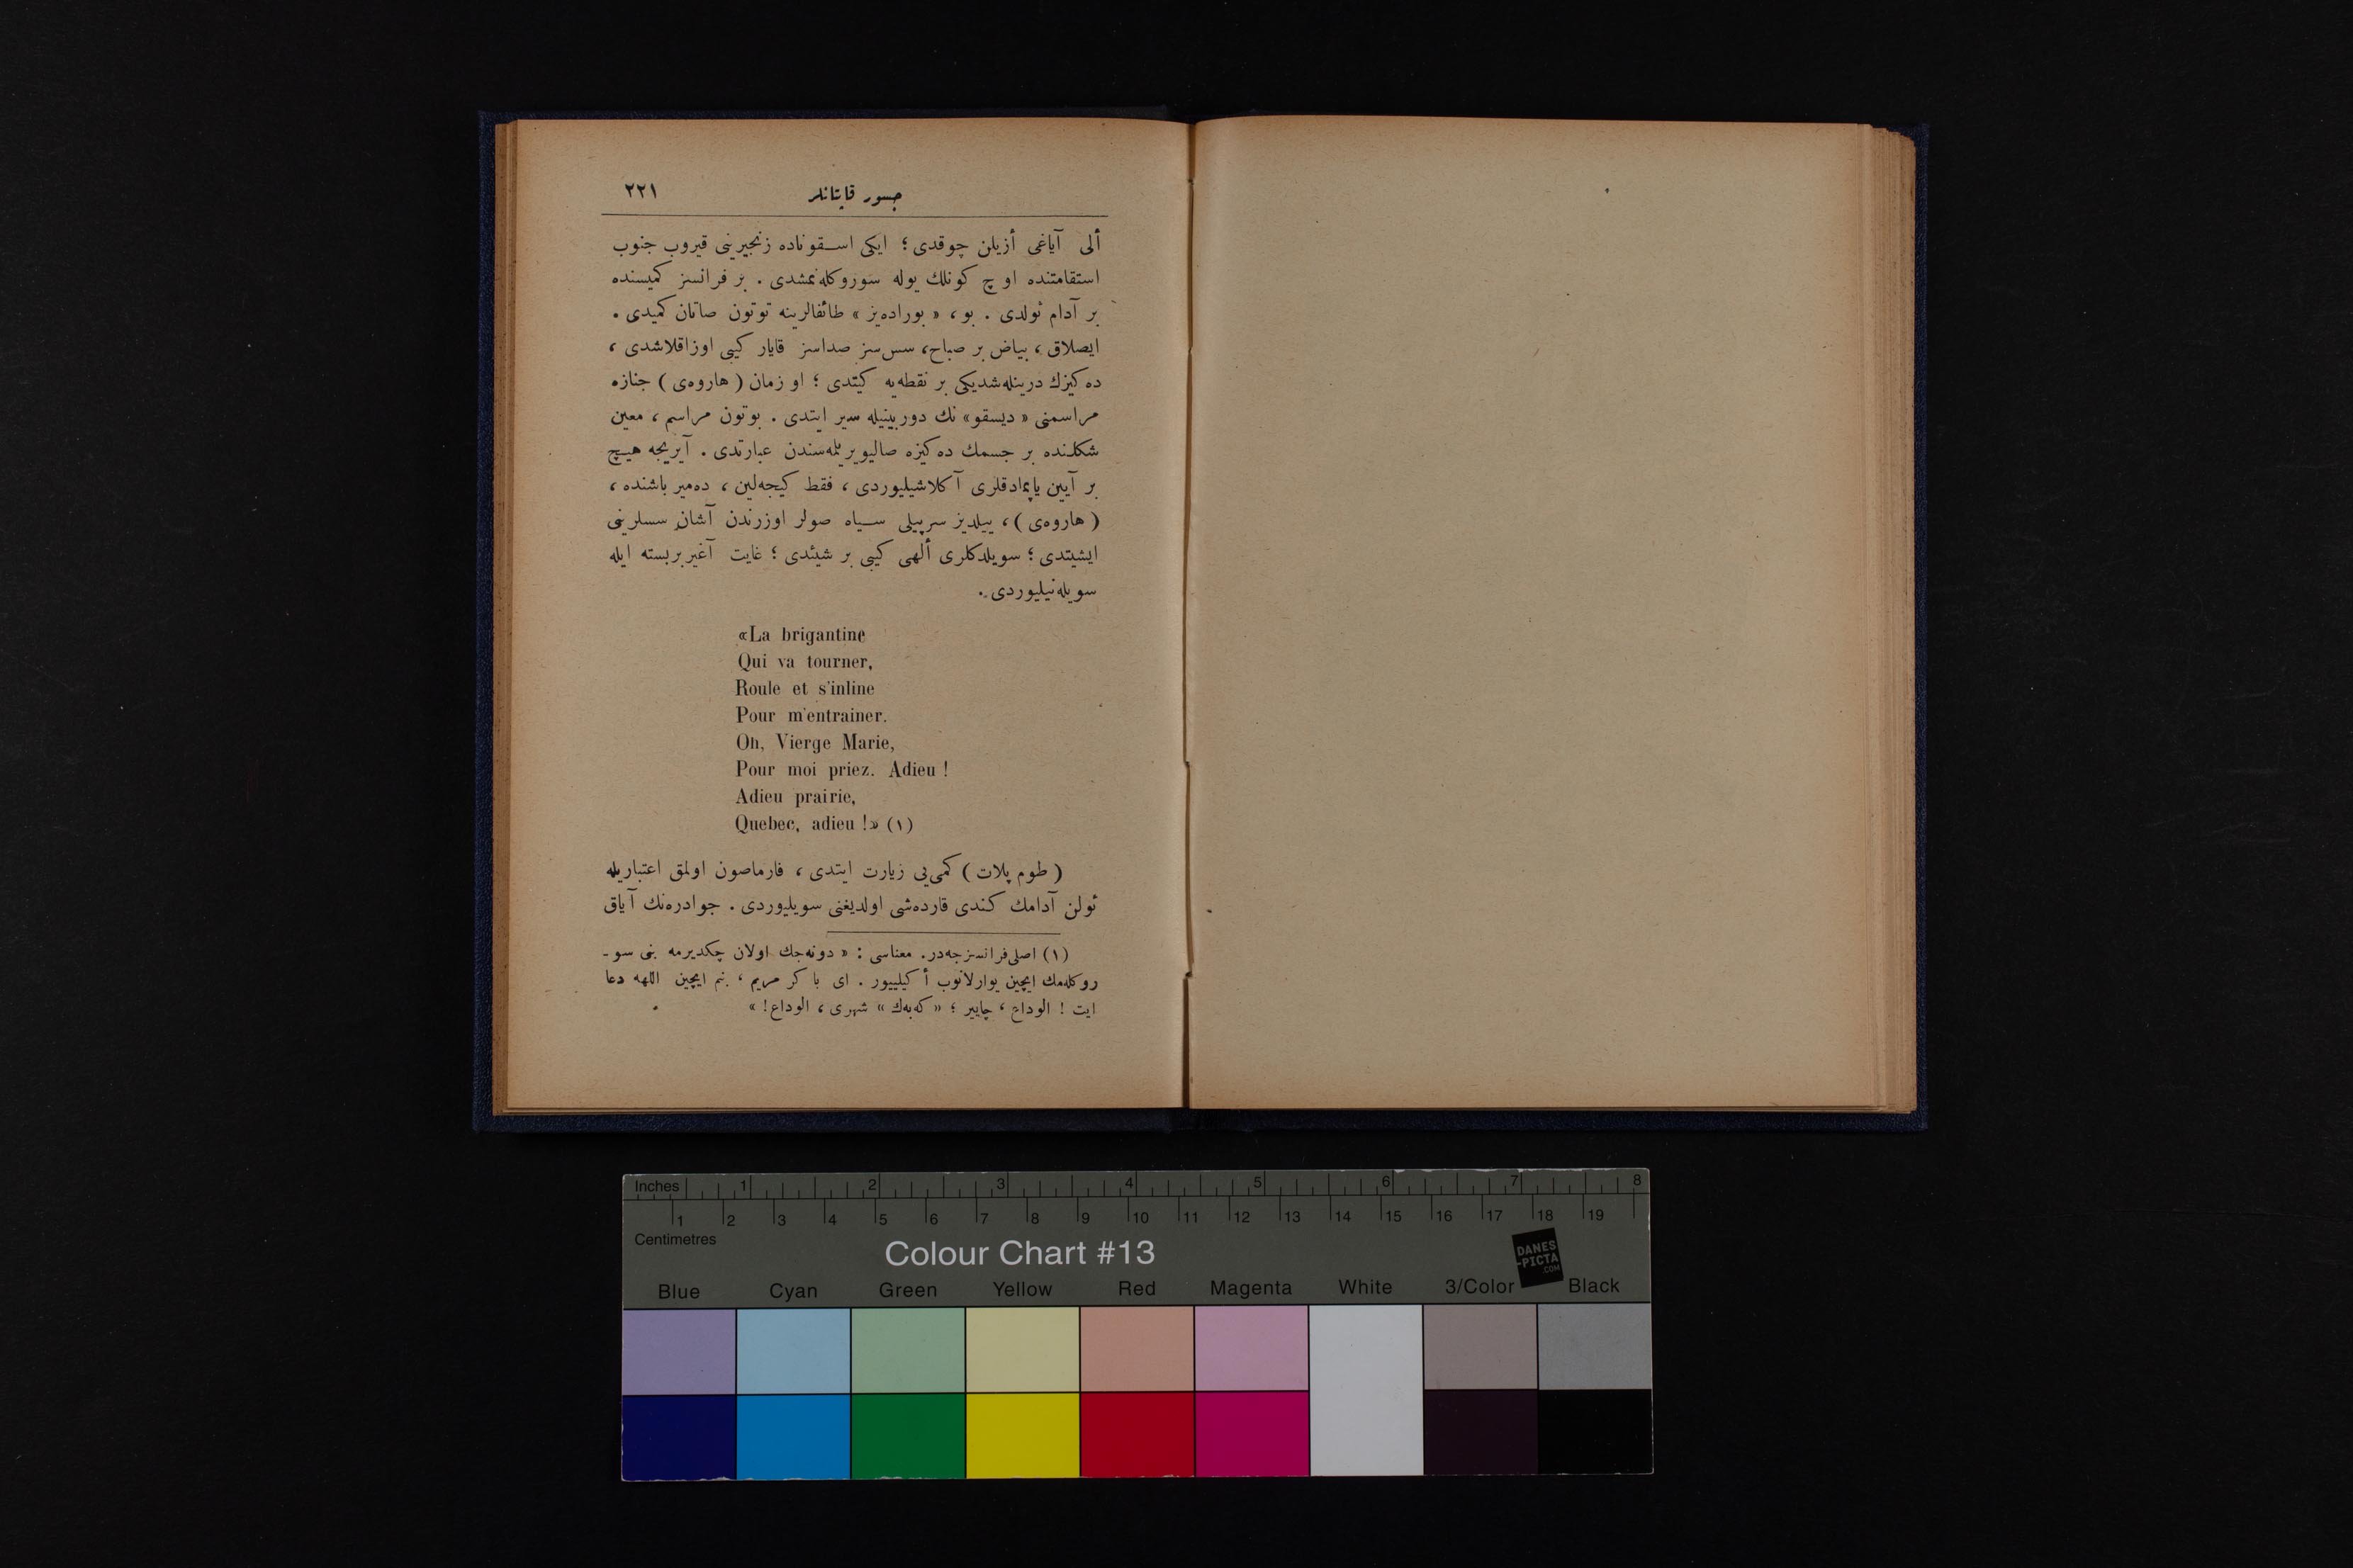 جسور قاپتانلر ٢٢١
ألی آیاغی أزیلن چوقدی ؛ ایکی اسـقوناده زنجیرینی قیروب جنوب
استقامتنده اوچ کونلك یوله سوروکلەنمشدی . بر فرانسز کمیسنده
بر آدام ئولدی . بو ، « بوراده‌یز » طائفالرینه توتون صاتان کمیدی .
ایصلاق ، بیاض بر صباح، سس‌سز صداسز قایار کیبی اوزاقلاشدی ،
ده‌کیزك درینله‌شدیکی بر نقطه‌یه کیتدی ؛ او زمان ( هاروه‌ی ) جنازه
مراسمنی « دیسقو» نك دوربینیله سیر ایتدی . بوتون مراسم ، معین
شکلنده بر جسمك ده‌کیزه صالیویریلمه‌سندن عبارتدی . آیریجه هیـچ
بر آیین یاپمادقلری آکلاشیلیوردی ، فقط کیجه‌لین ، ده‌میر باشنده ،
( هاروه‌ی ) ، ییلدیز سرپیلی سـیاه صولر اوزرندن آشان سسلرینی
ایشیتدی ؛ سویلدکلری ألهی کیبی بر شیئدی ؛ غایت آغیر بربسته ایله
سویله‌نیلیوردی .
«La brigantine
Qui va tourner,
Roule et s'inline
Pour m'entrainer.
Oh, Vierge Marie,
Pour moi priez. Adieu !
Adieu prairie,
Quebec, adieu !» (١)
( طوم پلات ) کمی‌یی زیارت ایتدی ، فارماصون اولمق اعتباریله
ئولن آدامك کندی قارده‌شی اولدیغنی سویلیوردی . جوادره‌نك آیاق
(١) اصلی‌فرانسزجه‌در. معناسی : « دونه‌جك اولان چکدیرمه بنی سو ـ
روکله‌مك ایچین یوارلانوب أکیلییور . ای باکر مریم ، بنم ایچین اللهه دعا
ایت ! الوداع ، چاییر ؛ « که‌به‌ك » شهری ، الوداع! »
Inches 1 2 3 4 5 6 7 8
1 2 3 4 5 6 7 8 9 10 11 12 13 14 15 16 17 18 19
Centimetres
Colour Chart #13
DANES
-PICTA
.COM
Blue Cyan Green Yellow Red Magenta White 3/Color Black